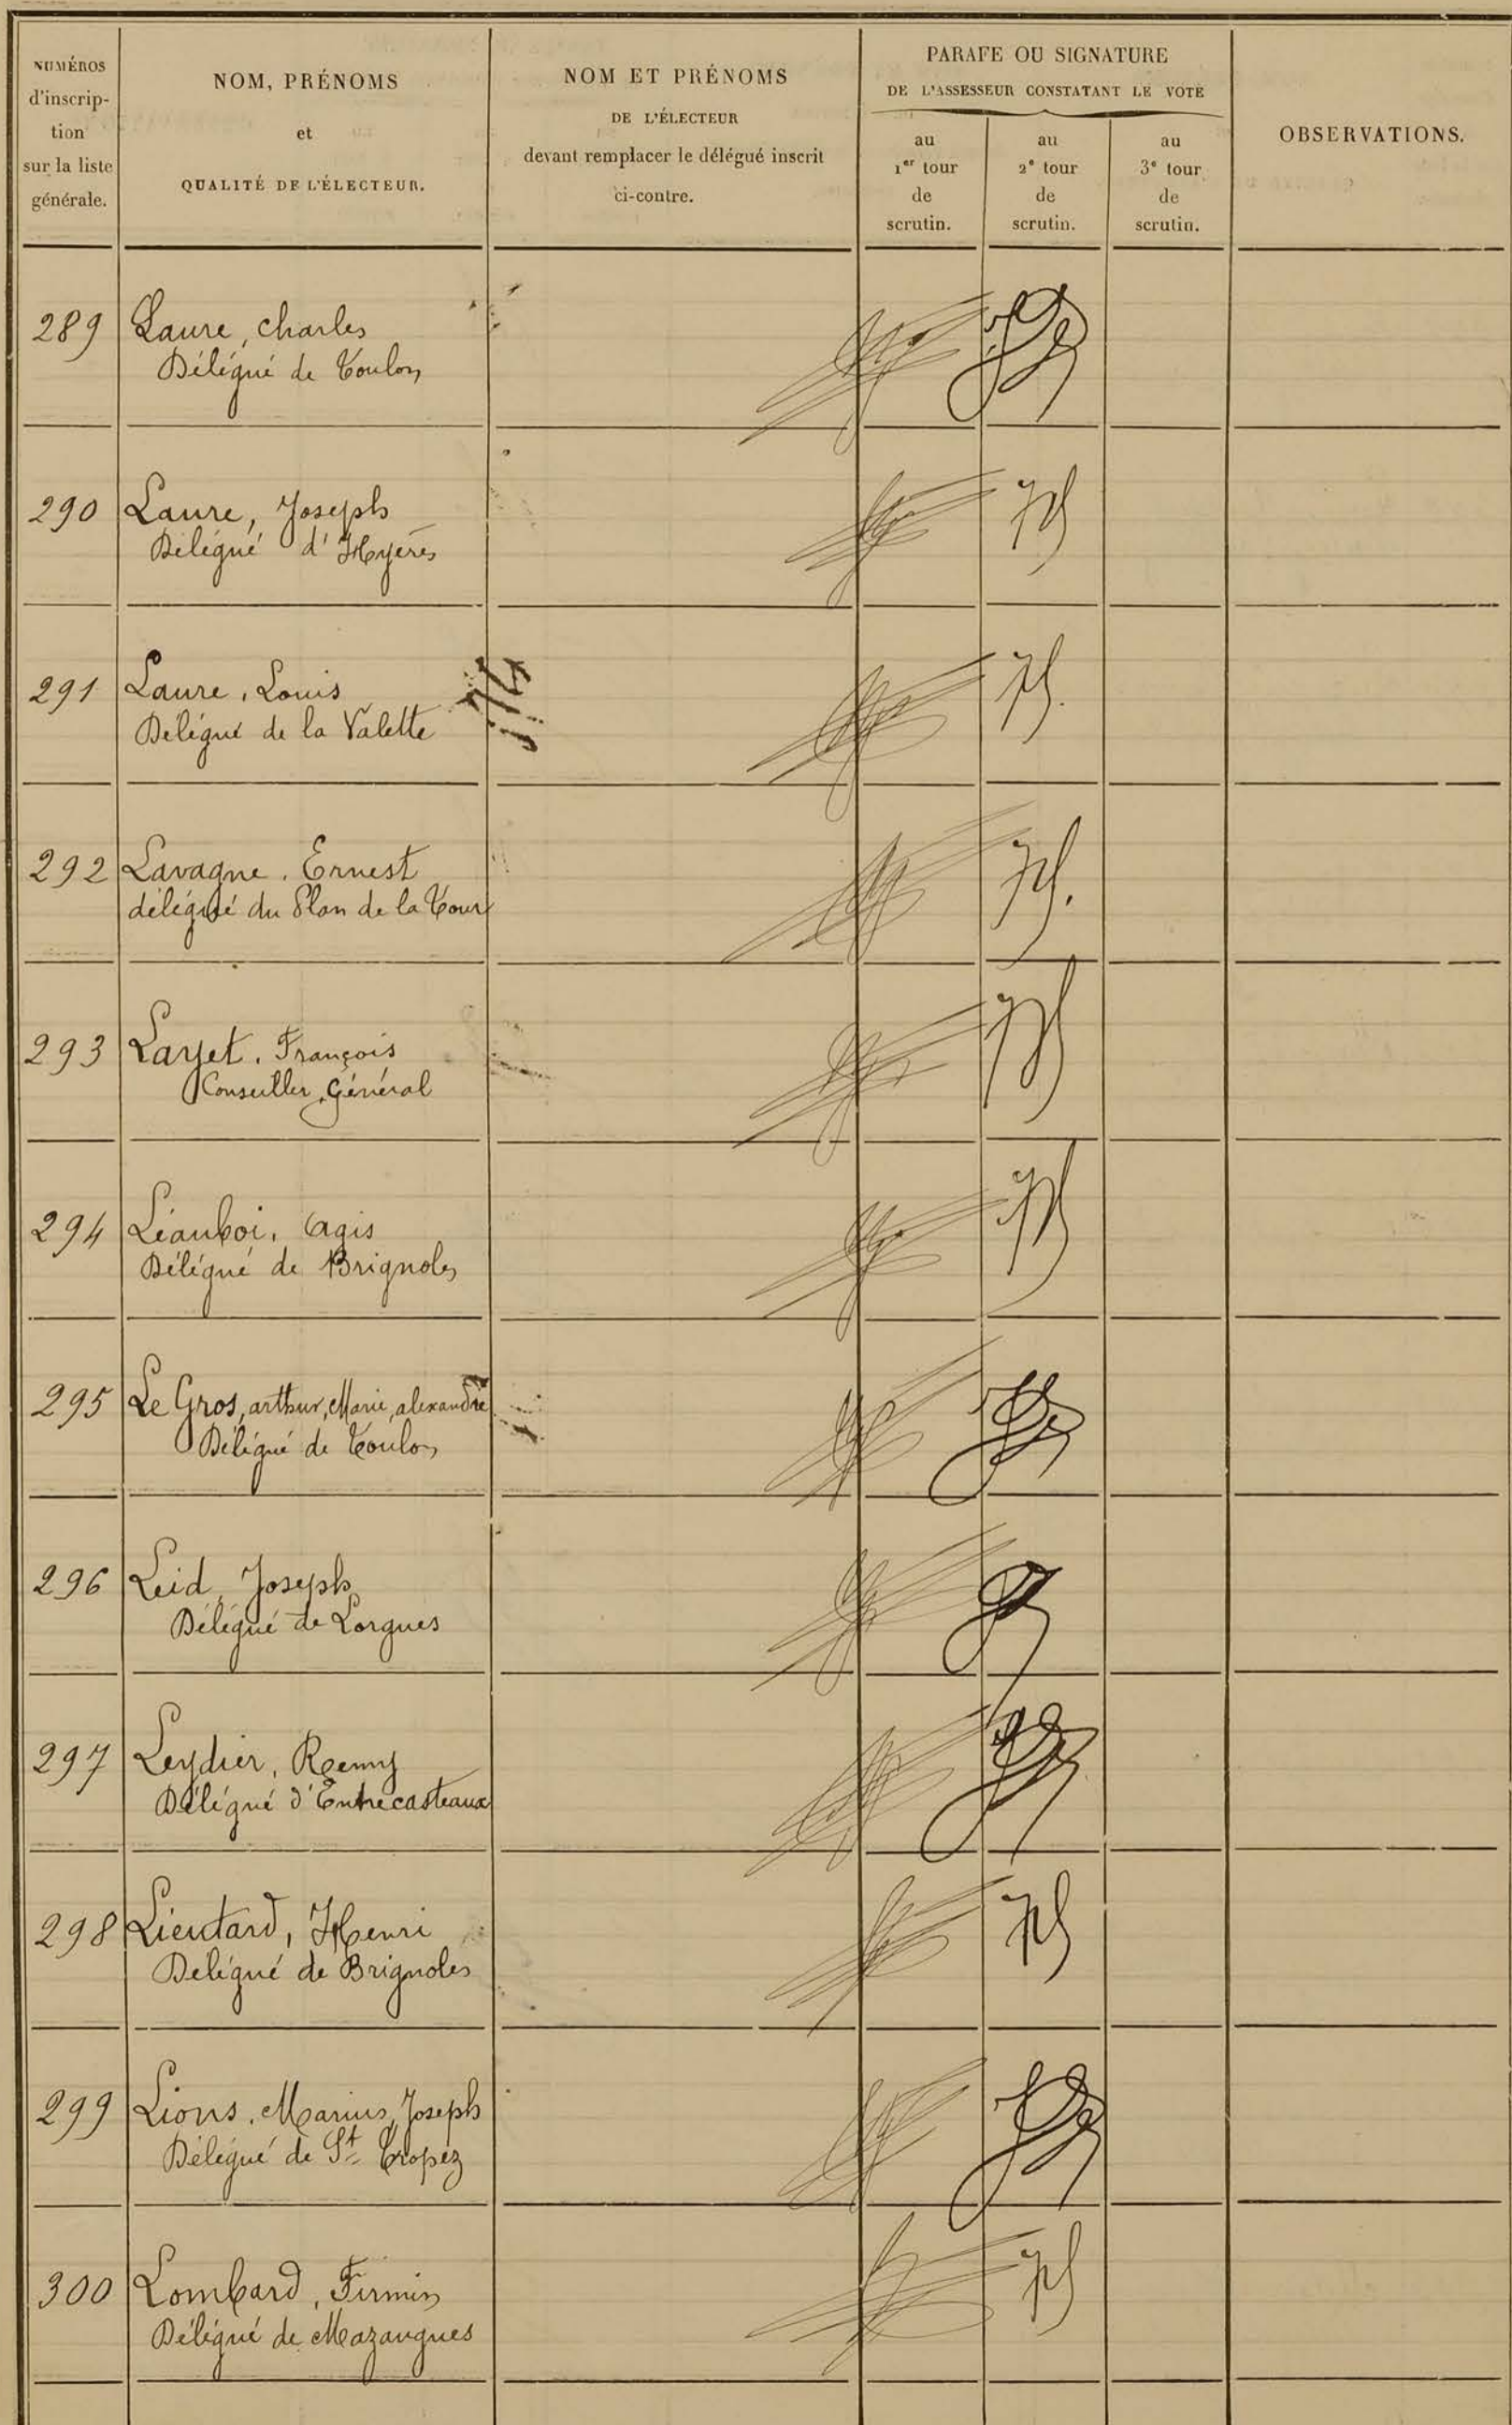 NUMÉROS
d'inscrip-
tion
sur la liste
générale.
NOM, PRÉNOMS
et
QUALITÉ DE L'ÉLECTEUR.
NOM ET PRÉNOMS
DE L'ÉLECTEUR
devant remplacer le délégué inscrit
ci-contre.
PARAFE OU SIGNATURE
DE L'ASSESSEUR CONSTATANT LE VOTE
au
1er tour
de
scrutin.
au
2e tour
de
scrutin.
au
3e tour
de
scrutin.
OBSERVATIONS.
289 Laure, Charles
Délégué de Toulon
290 Laure, Joseph
Délégué d'Hyères
291 Laure, Louis
Délégué de la Valette
292 Lavagne, Ernest
délégué du Plan de la Tour
293 Layet, François
Conseiller Général
294 Agis
Délégué de Brignoles
295 Le Gros, arthur, Marie, alexandre
Délégué de Toulon
296 Leid, Joseph
Délégué de Lorgues
297 Leydier, Remy
Délégué d'Entrecasteaux
298 Lieutard, Henri
Délégué de Brignoles
299 Lions, Marius, Joseph
Délégué de St Tropez
300 Lombard, Firmin
Délégué de Mazaugues